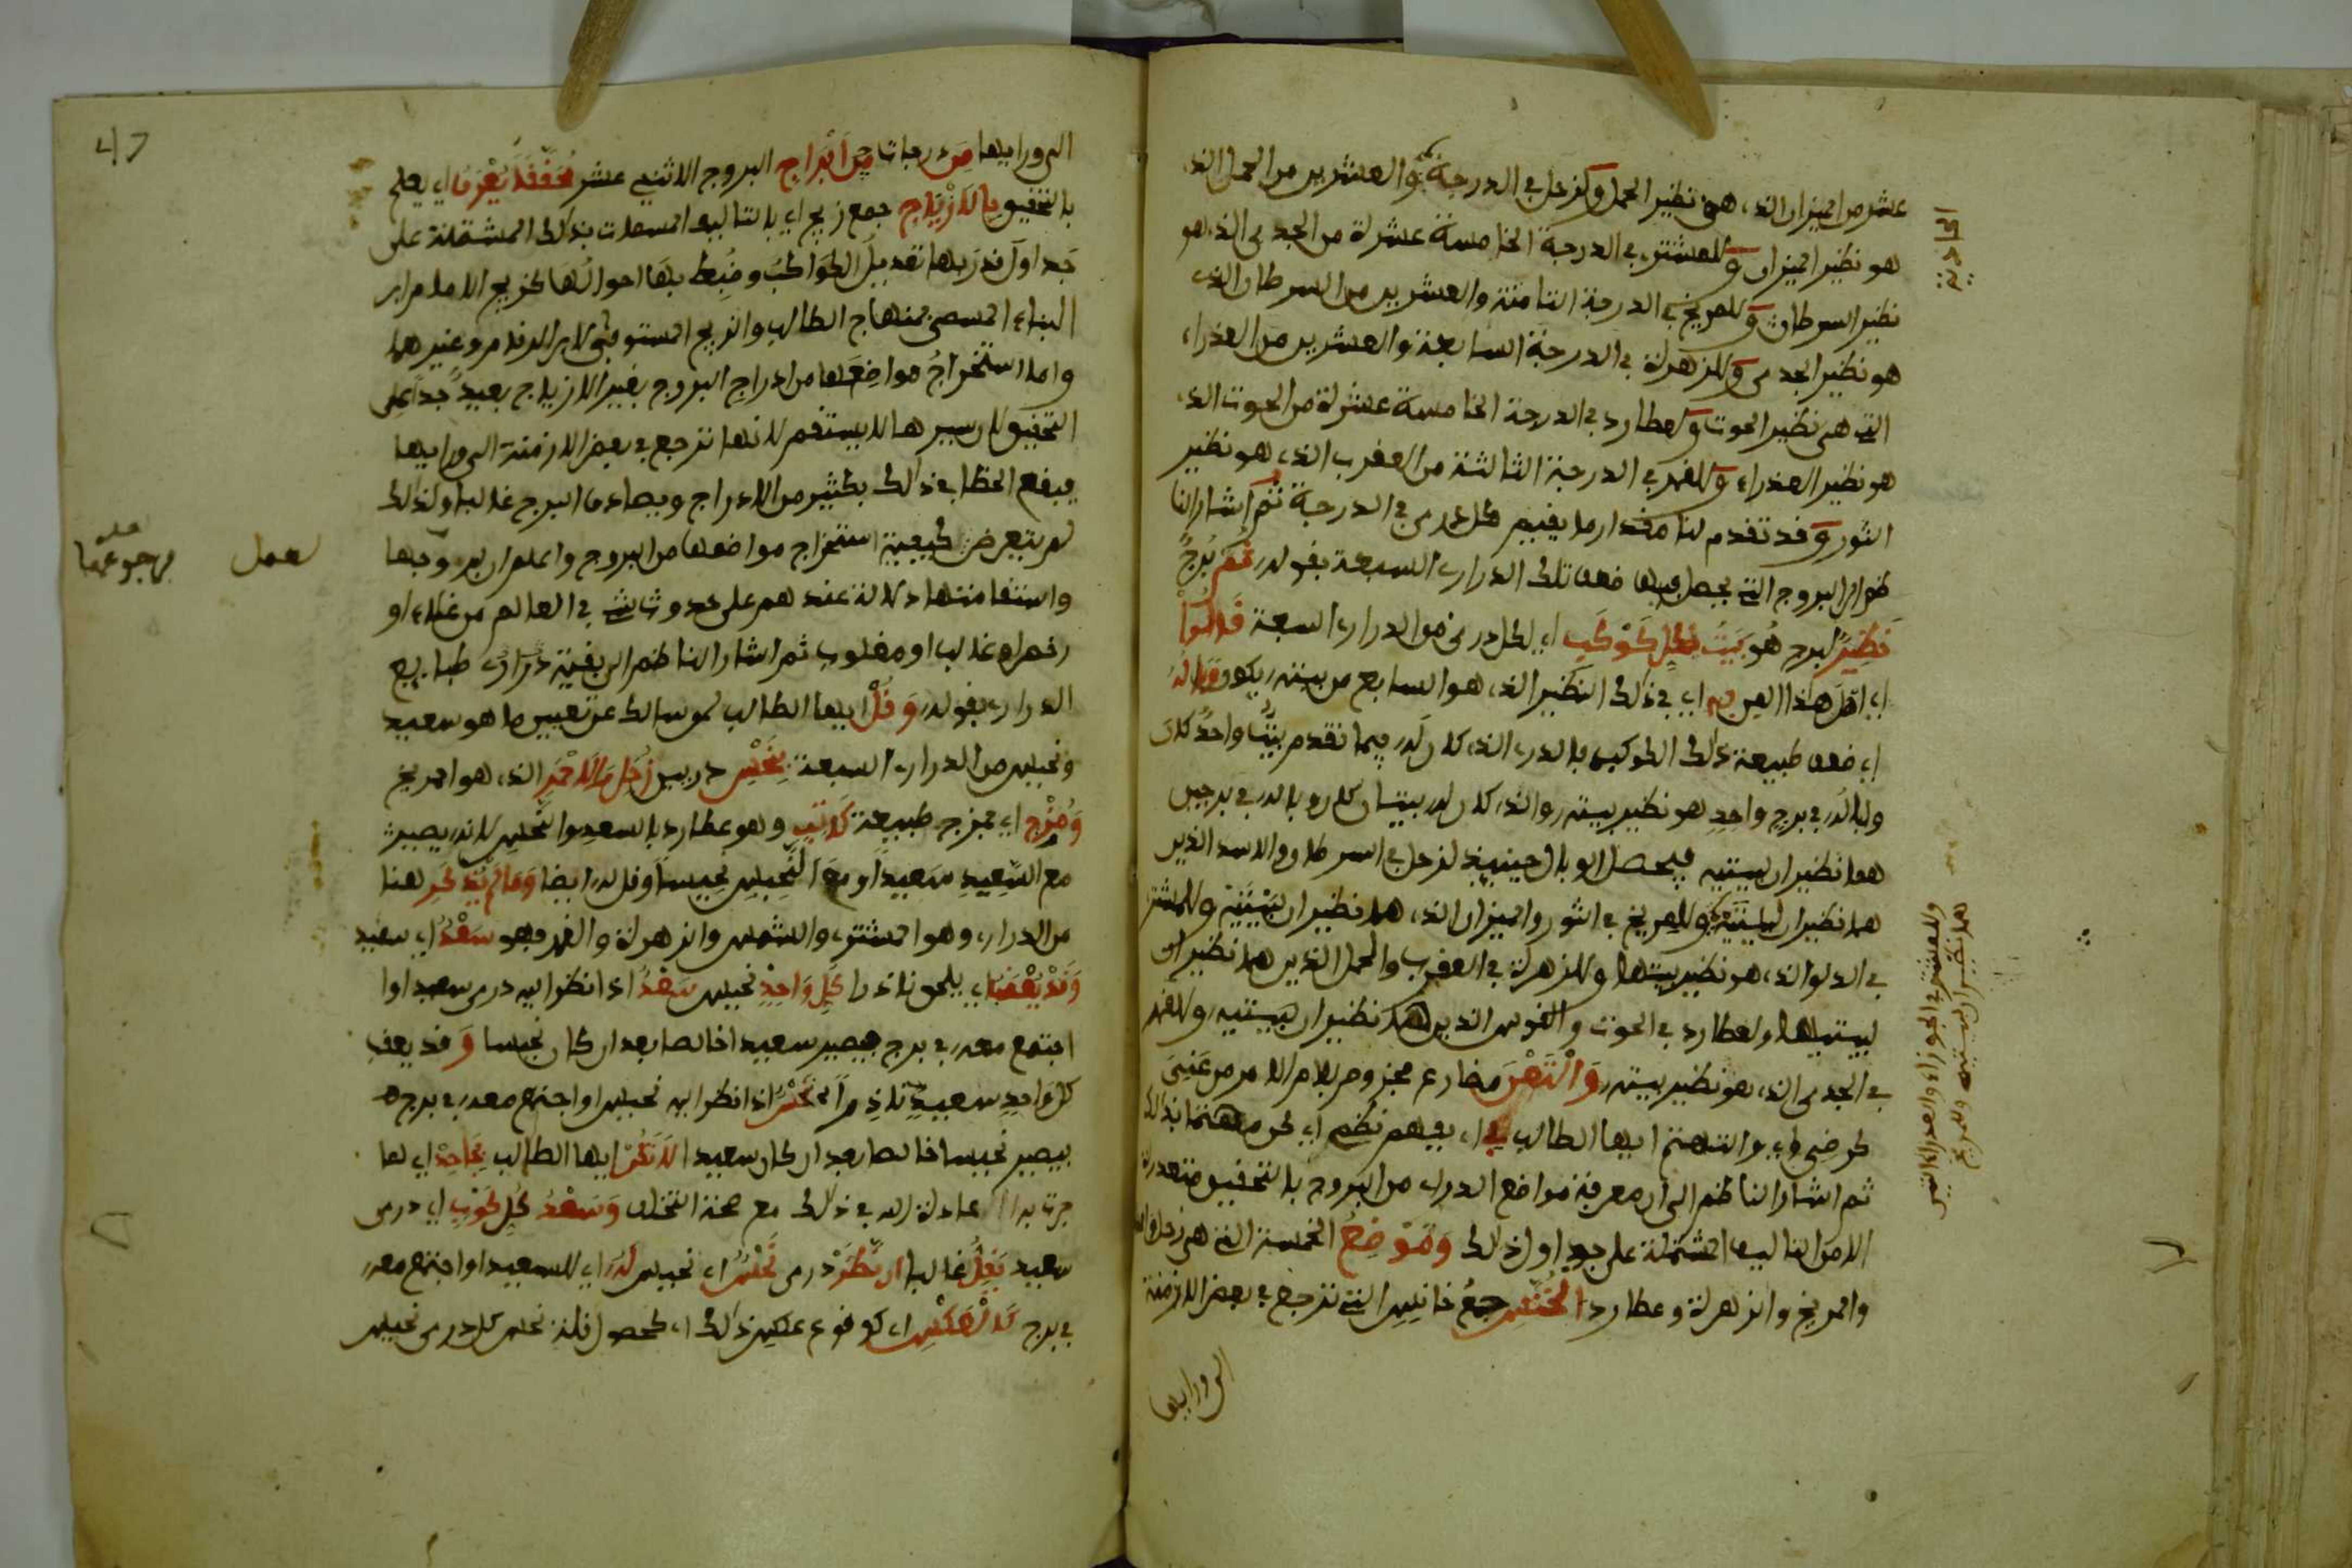 عشر من الميزان الذي هو نظير الحمل وَلزحل في الدرجة والعشرين من الحمل الذي
الحادية
هو نظير الميزان وَللمشتري في الدرجة الخامسة عشرة من الجدي الذي هو
نظير السرطان وَللمريخ في الدرجة الثامنة والعشرين من السرطان الذي
هو نظير الجدي وَللزهرة في الدرجة السابعة والعشرين من العذراء
التي هي نظير الحوت وَلعطارد في الدرجة الخامسة عشرة من الحوت الذي
هو نظير العذراء وَللقمر في الدرجة الثالثة من العقرب الذي هو نظير
الثور وَقد تقدم لنا مقدار ما يقيم كل دري في الدرجة ثم أشار الناظم
إلى البروج التي يحصل فيها ضعف تلك الدراري السبعة بقوله ثم بُرجٌ
نظيرٌ لبرج هُو بَيتُ لكل كَوْكَبِ أي لكل دري من الدراري السبعة
أي في ذلك النظير الذي هو السابع من بيته يكون وباله
أي ضعف طبيعة ذلك الكوكب فالدري الذي كان له فيما تقدم بيتٌ واحدٌ كان
وباله في برج واحد هو نظير بيته والذي كان له بيتان كان وباله في برجين
هما نظيران لبيتيه فيحصل الوبال حينئذ لزحل في السرطان والاسد الذين
هما نظيران لبيتيه وللمريخ في الثور والميزان الذي هما نظيران لبيتيه وللشمس
في الدلو الذي هو نظير بيتها وللزهرة في العقرب والحمل الذين هما نظيران
لبيتيها ولعطارد في الحوت والقوس الذين هما نظيران لبيتيه وللقمر
في الجدي الذي هو نظير بيته وَالْتَعْنَ مضارع مجزوم بلام الامر من عَنِيَ
كرضي أي والتهتم أيها الطالب في أي بفهم نظمي أي كن مهتما بذلك
ثم أشار الناظم الى أن معرفة مواضع الدراري من البروج بالتحقيق متعذرة
الا من التاليف المشتملة على جداول ذلك وَمَوْضِعُ الخمسة التي هي زحل والمشتري
والمريخ والزهرة وعطارد الخُنَّسِ جمعُ خانِسِ التي ترجع في بعض الازمنة
الى ورايها
وللمشتري في الجوزاء والعذراء الذين
هما نظيران لبيتيه وللمريخ
47
الى ورايها مِن درجات مِن أَبْرَاج البروج الاثني عشر مُحَقَّقًا يُعْرَفُ أي يعلم
بالتحقيق بِالأَزْيَاجِ جمع زيج أي بالتاليف المسمات بذلك المشتملة على
جَداول قدرَ بها تعديل الكواكب وضُبِط بها احوالُها كزيج الامام ابن
البناء المسمى منهاج الطالب والزيج المستوفى لابن الرقام وغيرهما
واما استخراجُ مواضعها من ادراج البروج بغير الازياج بعيدٌ جداً على
التحقيق لان سيرها لا يستقيم لانها ترجع في بعض الازمنة الى ورايها
فيقع الخطا في ذلك بكثير من الادراج ويصادف البرج غالبا ولذلك
لم يتعرض لكيفية استخراج مواضعها من البروج واعلم ان برجوعها
رجوعها
لعمل
واستقامتها دلالة عندهم على حدوث شيء في العالم من غلاء أو
رخص او غالب او مغلوب ثم اشار الناظم الى بقية طبايع
الدراري بقوله وَقُلْ أيها الطالب لمن سالك عن تعيين ما هو سعيد
ونحيس من الدراري السبعة نَحْسٌ زُحَلُ مَعَ الاَحْمَرِ الذي هو المريخ
وَمُزْجٌ أي ممزوج طبيعة كَاتِبٌ وهو عطارد بالسعد والنحس لانه يصير
مع السَّعِيدِ سَعيداً ومع النَّحِيس نحيساً وقل له ايضا وَمَا لَمْ يُذْكَر هنا
من الدراري وهو المشتري والشمس والزهرة والقمر فهو سَعْدٌ أي سعيد
وَقَدْ يُعْقِبُ أي يلحق نادرا كُلَّ وَاحِدٍ نحيس سَعْدٌ اذا نظر اليه دري سعيد أو
اجتمع معه في برج فيصير سعيدا خالصا بعد ان كان نحيسا وَ قد يعقب
كل واحد سعيد نادراً نَحْسٌ اذا نظر اليه نحيس او اجتمع معه في برج
فيصير نحيسا خالصا بعد ان كان سعيدا لاَ تَكُنْ أيها الطالب بِجَاحِدْ أي لما
جرت به عادة الله في ذلك مع صحة التخلف وَسَعْدُ كُلِّ كَوْكَبٍ أي دري
سعيد يَقِلُّ غالبا ان نَظَرْ دري نَحْسٌ أي نحيس لَهُ أي للسعيد او اجتمع معه
في برج كَالعَكْسِ أي كوقوع عكس ذلك أي كحصول قلة نحس كل دري نحيس